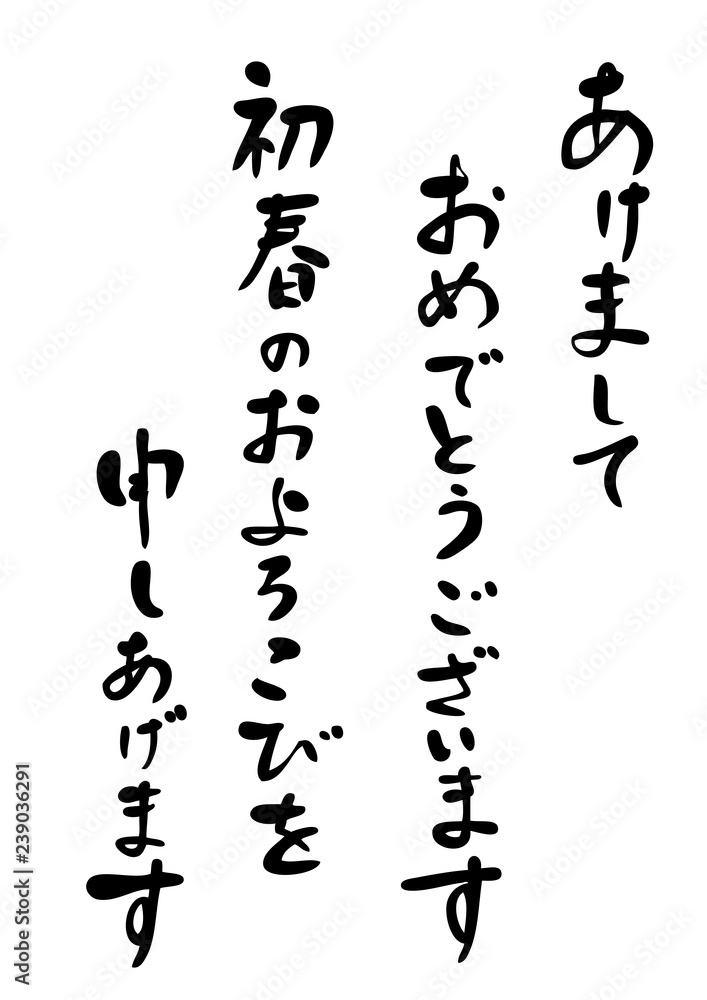 あけまして
おめでとうございます
初春のおよろこびを
申しあげます
Adobe Stock | #239036291